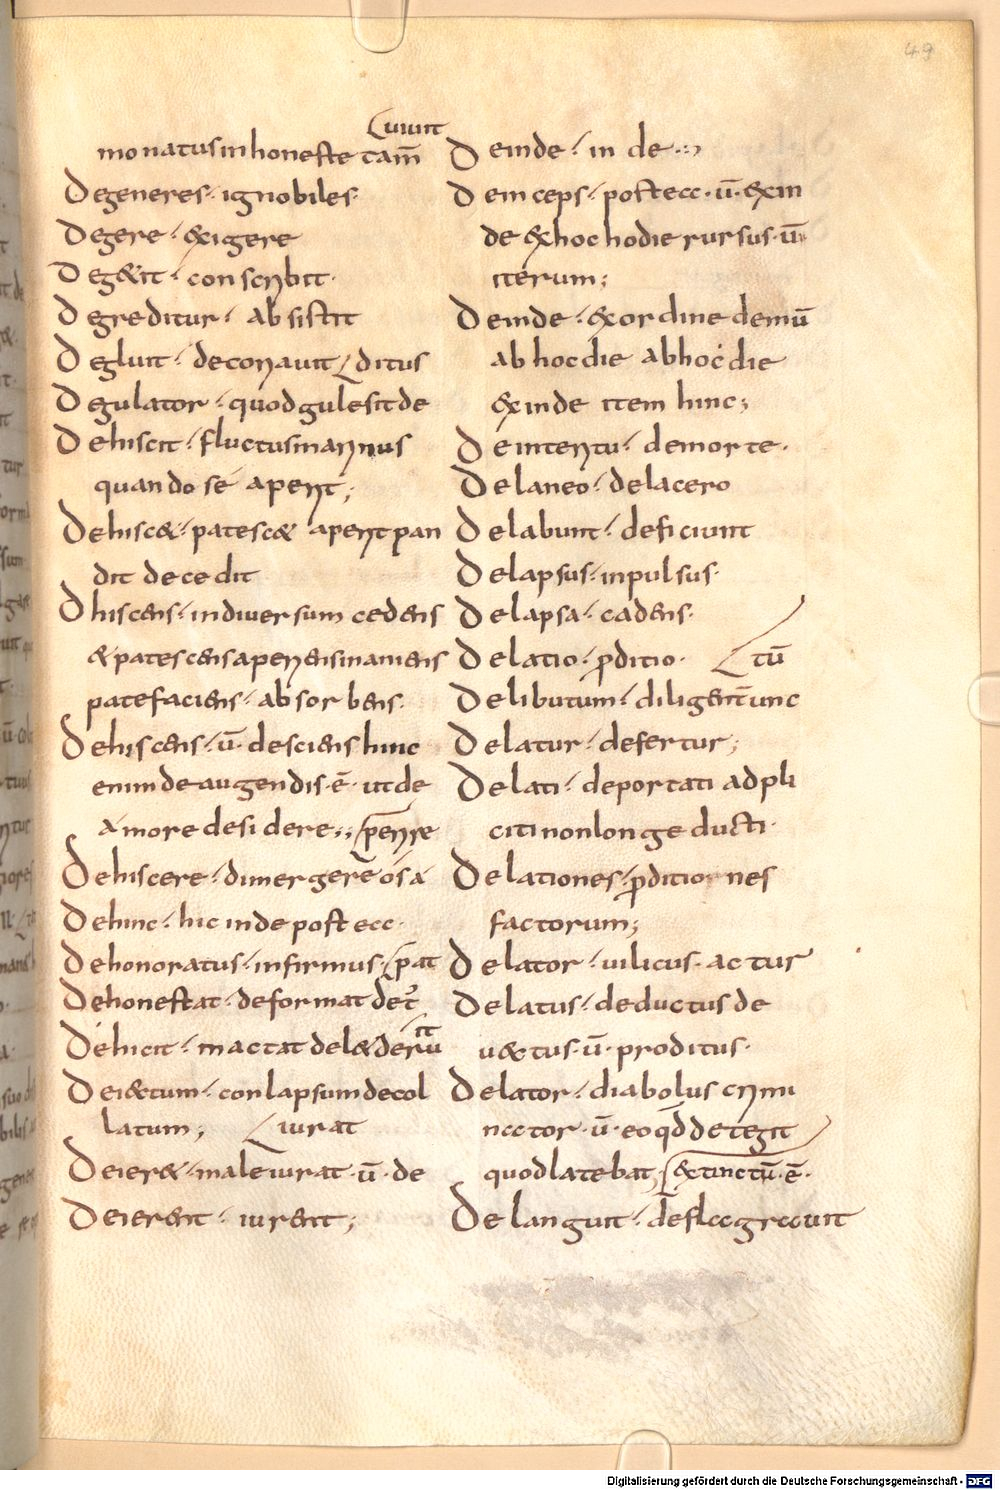 49
uiuit
mo natus inhoneste tam̄
Degeneres · ignobiles ·
Degere · exigere
Deg&it · conscribit ·
Degreditur · absistit
Degluit · decoriauit ditus
Degulator · quod gulesit de
Dehiscit · fluctus marinus
quando se aperit;
Dehisc& · patesc& aperit pan
dit decedit
Dhiscens · indiuersum cedens
& patescens aperiens inaniens
patefaciens · absorbens ·
Dehiscens · ū · desciens hinc
enim de augendis · ē · ut de
amore desidere;; perire
Dehiscere · dimergere osa
Dehinc · hic inde postecc ·
Dehonoratus · infirmus · pat
Dehonestat · deformat det̄
it
Dehicit · mactat del& deru
Dei&tum · conlapsum decol
latum; iurat
Deier& · male iurat · ū · de
Deierent · iurent;
Deinde · in de
Deinceps · postecc · ū · exin
de ex hoc hodie rursus · ū
iterum;
Deinde · ex ordine demū
ab hoc die ab hoc die
exinde item hinc;
De interitu · de morte ·
Delaneo · delacero
Delabunt · deficiunt
Delapsus · inpulsus ·
Delapsa · cadens ·
Delatio · p̄ditio · tū
Delibutum · diligent̄ unc
Delatur · defertur;
Delati · deportati adpli
citi non longe ducti ·
Delationes · p̄ditionnes
factorum;
Delator · uilicus · actus
Delatus · deductus de
u&tus · ū · proditus ·
Delator · diabolus crimi
nector · ū · eo qd̄ detegit
quod latebat; extinctū · ē ·
Delanguit · defleegreeuit
Digitalisierung gefördert durch die Deutsche Forschungsgemeinschaft - DFG